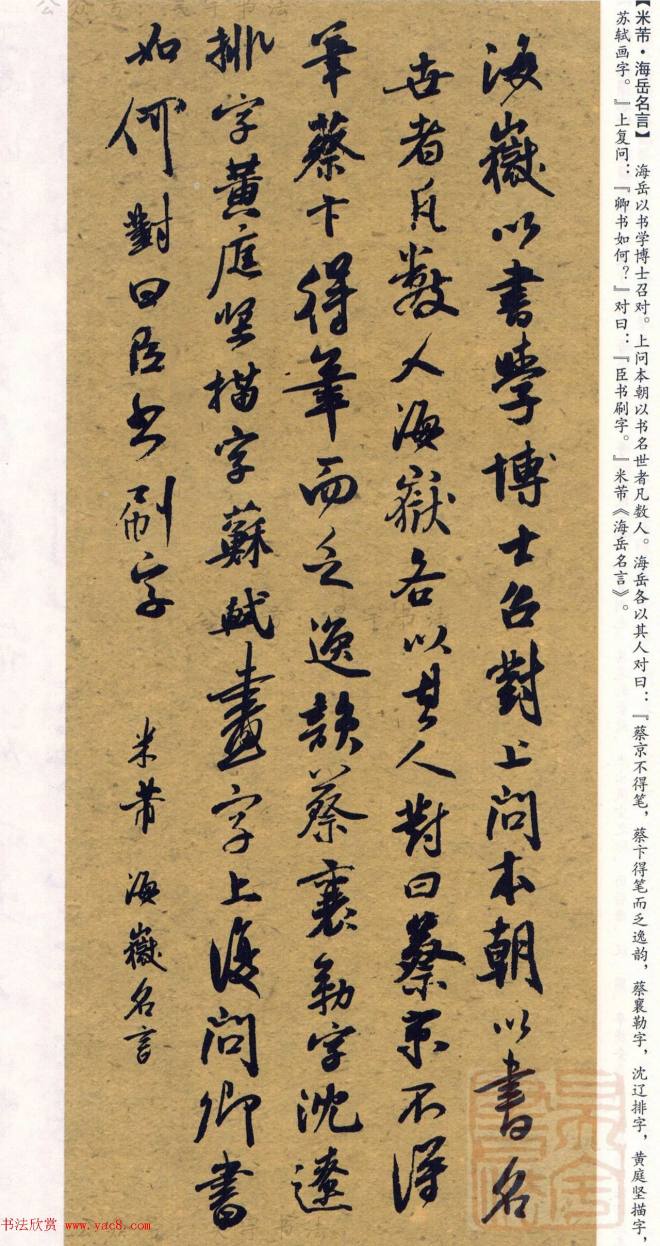 【米芾·海岳名言】 海岳以书学博士召对。上问本朝以书名世者凡数人。海岳各以其人对曰：『蔡京不得笔，蔡卞得笔而乏逸韵，蔡襄勒字，沈辽排字，黄庭坚描字，
苏轼画字。』上复问：『卿书如何？』对曰：『臣书刷字。』米芾《海岳名言》。
海嶽以書學博士召對上問本朝以書名
世者凡數人海嶽各以其人對曰蔡京不得
筆蔡卞得筆而乏逸韻蔡襄勒字沈遼
排字黃庭坚描字蘇軾畫字上復問卿書
如何對曰臣书刷字
米芾 海嶽名言
书法欣赏 www.yac8.com